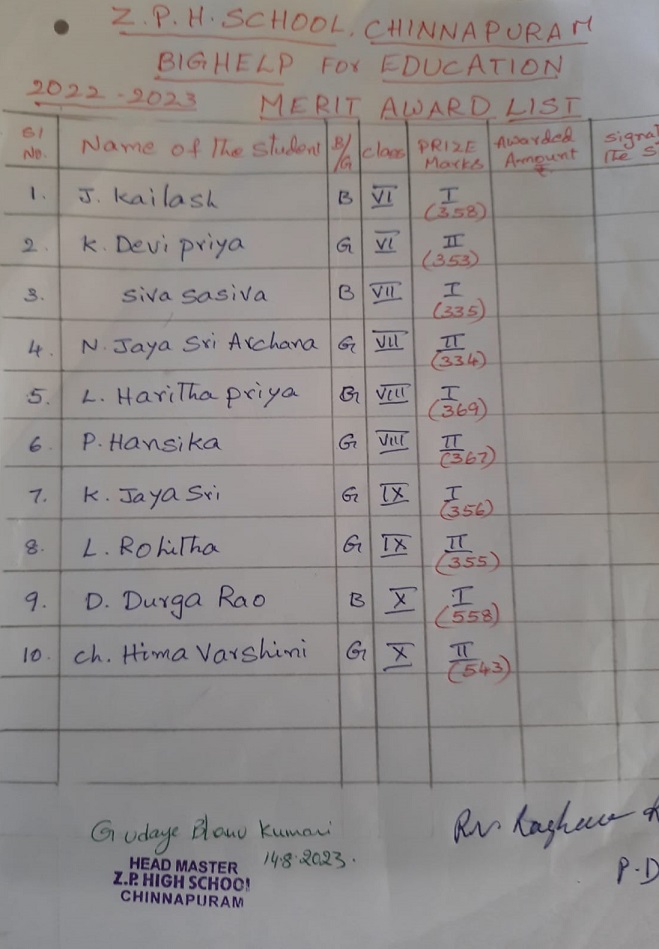 Z.P.H. SCHOOL, CHINNAPURAM
BIGHELP FOR EDUCATION
2022-2023 MERIT AWARD LIST
Sl No. Name of The Student B/G Class PRIZE Marks Awarded Amount
1. J. Kailash B VI I (358)
2. K. Devi priya G VI II (353)
3. Siva sasiva B VII I (335)
4. N. Jaya Sri Archana G VII II (334)
5. L. Haritha priya G VIII I (369)
6 P. Hansika G VIII II (367)
7. K. Jaya Sri G IX I (356)
8. L. Rohitha G IX II (355)
9. D. Durga Rao B X I (558)
10. Ch. Hima Varshini G X II (543)
G udaye Kumari
14.8.2023.
HEAD MASTER
Z.P. HIGH SCHOOL
CHINNAPURAM
P.D